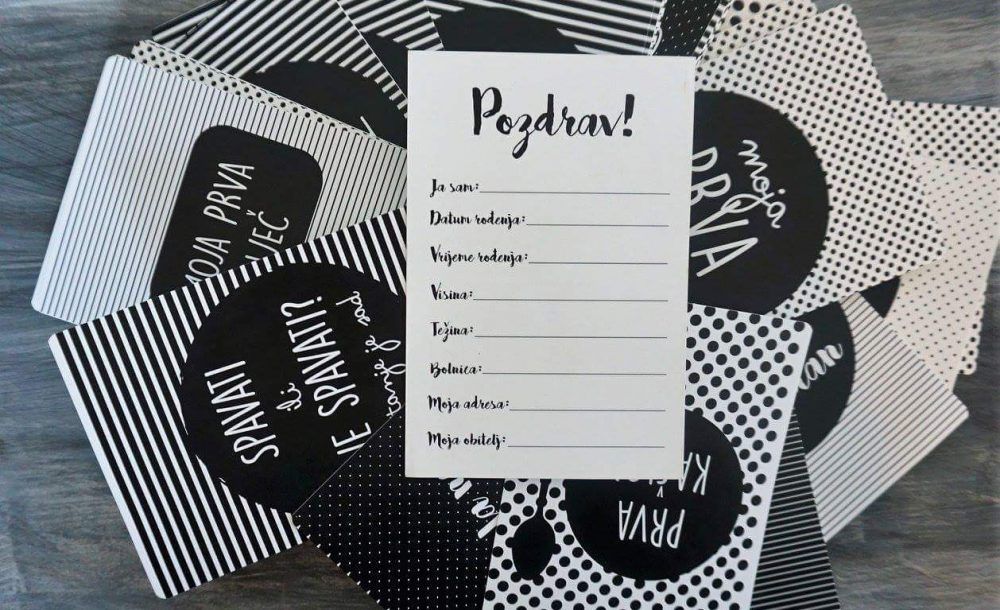 Pozdrav!
Ja sam:
Datum rođenja:
Vrijeme rođenja:
Visina:
Težina:
Bolnica:
Moja adresa:
Moja obitelj:
MOJA PRVA
SPAVATI
ili
NE SPAVATI?
pitanje je sad
moja
PRVA
PRVA